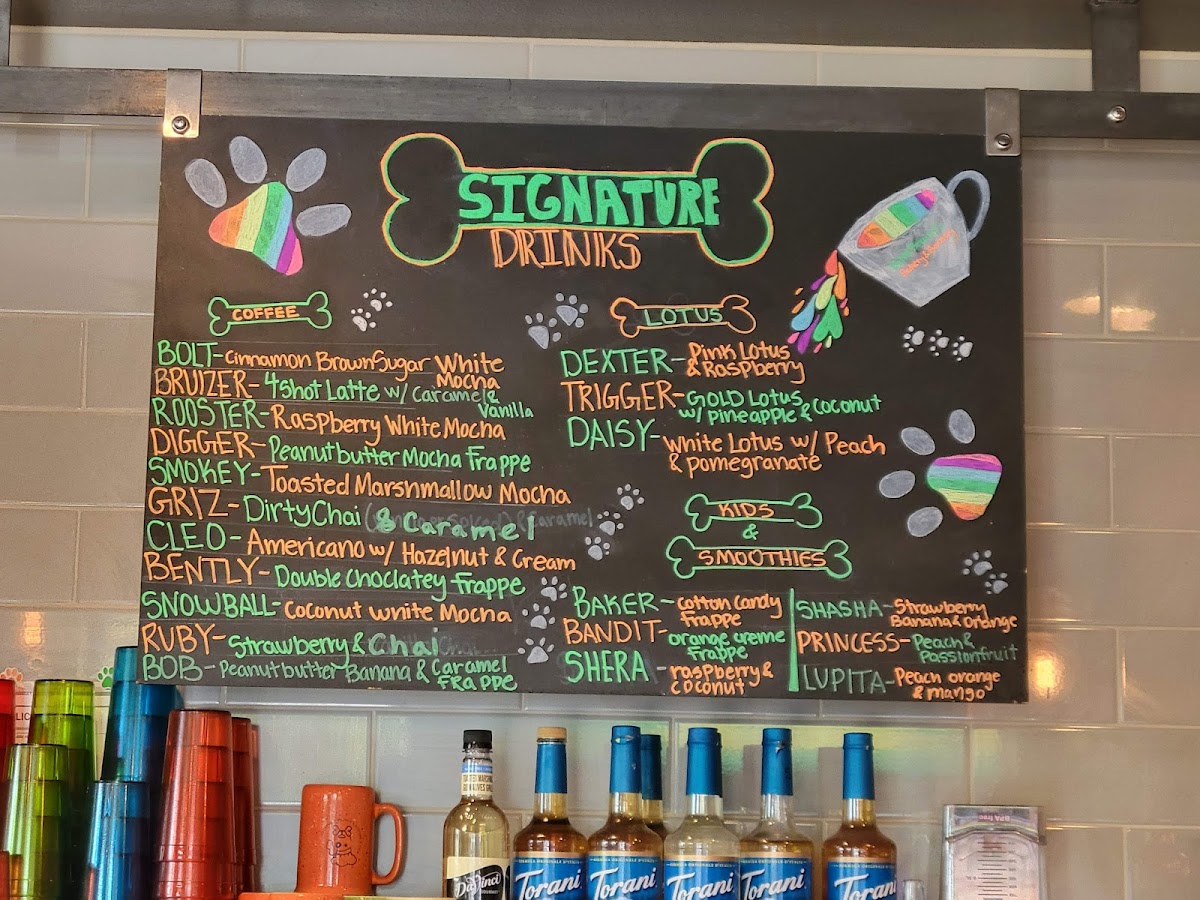 SIGNATURE
DRINKS
COFFEE
BOLT-Cinnamon BrownSugar White
Mocha
BRUIZER-4Shot Latte w/ Caramel &
Vanilla
ROOSTER-Raspberry White Mocha
DIGGER-Peanutbutter Mocha Frappe
SMOKEY-Toasted Marshmallow Mocha
GRIZ-Dirty Chai & Caramel
CLEO-Americano w/ Hazelnut & Cream
BENTLY-Double Choclatey Frappe
SNOWBALL-Coconut white Mocha
RUBY-Strawberry & Chai
BOB-Peanutbutter Banana & Caramel
FRAPPE
LOTUS
DEXTER-Pink Lotus
& Raspberry
TRIGGER-GOLD LOTUS
w/ Pineapple & Coconut
DAISY-White Lotus w/ Peach
& Pomegranate
KIDS
&
SMOOTHIES
BAKER-Cotton Candy
Frappe
BANDIT-orange creme
Frappe
SHERA-raspberry &
coconut
SHASHA-Strawberry
Banana & Orange
PRINCESS-Peach &
Passionfruit
LUPITA-Peach orange
& mango
DaVinci
Torani
Torani
Torani
Torani
Torani
BPA free